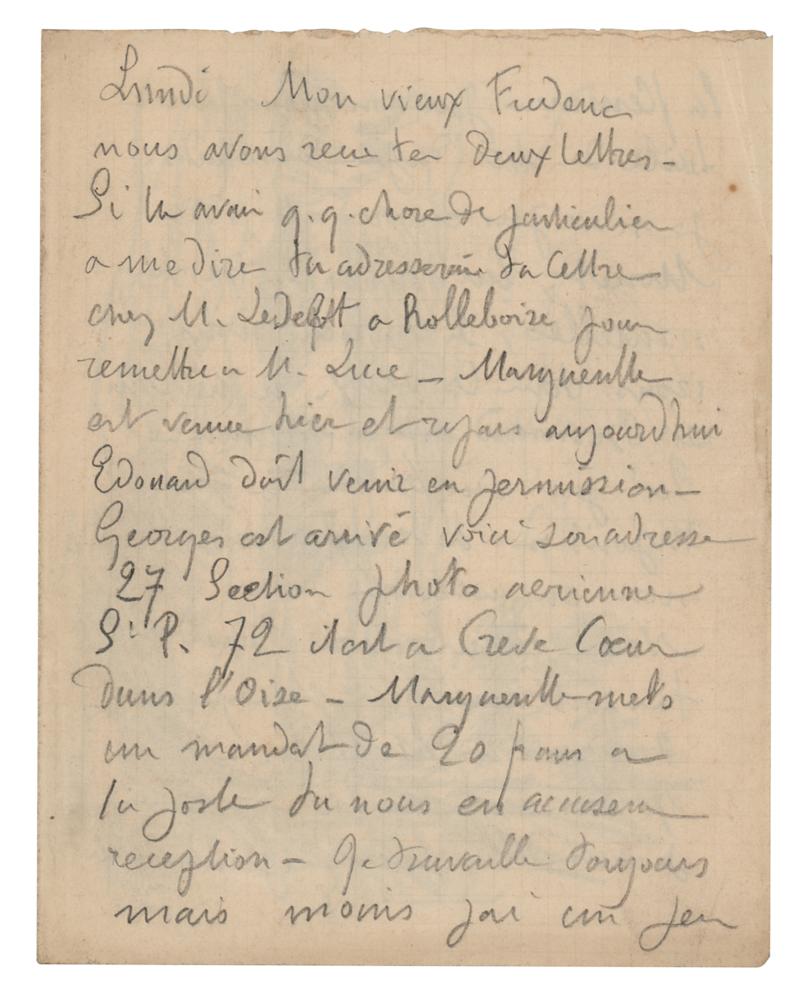 Lundi Mon vieux Frederic
nous avons reçu tes deux lettres –
Si tu avais q.q. chose de particulier
a me dire tu adresserais ta lettre
chez M. a Rolleboise pour
remettre a M. Luce – Marguerite
est venue hier et repars aujourdhui
Edouard doit venir en permission –
Georges est arrivé voici son adresse
27 Section photo aerienne
S. P. 72 il est a Creve Cœur
dans l'Oise – Marguerite mets
un mandat de 20 francs a
la poste tu nous en accusera
reception – Je travaille toujours
mais moins jai un peu